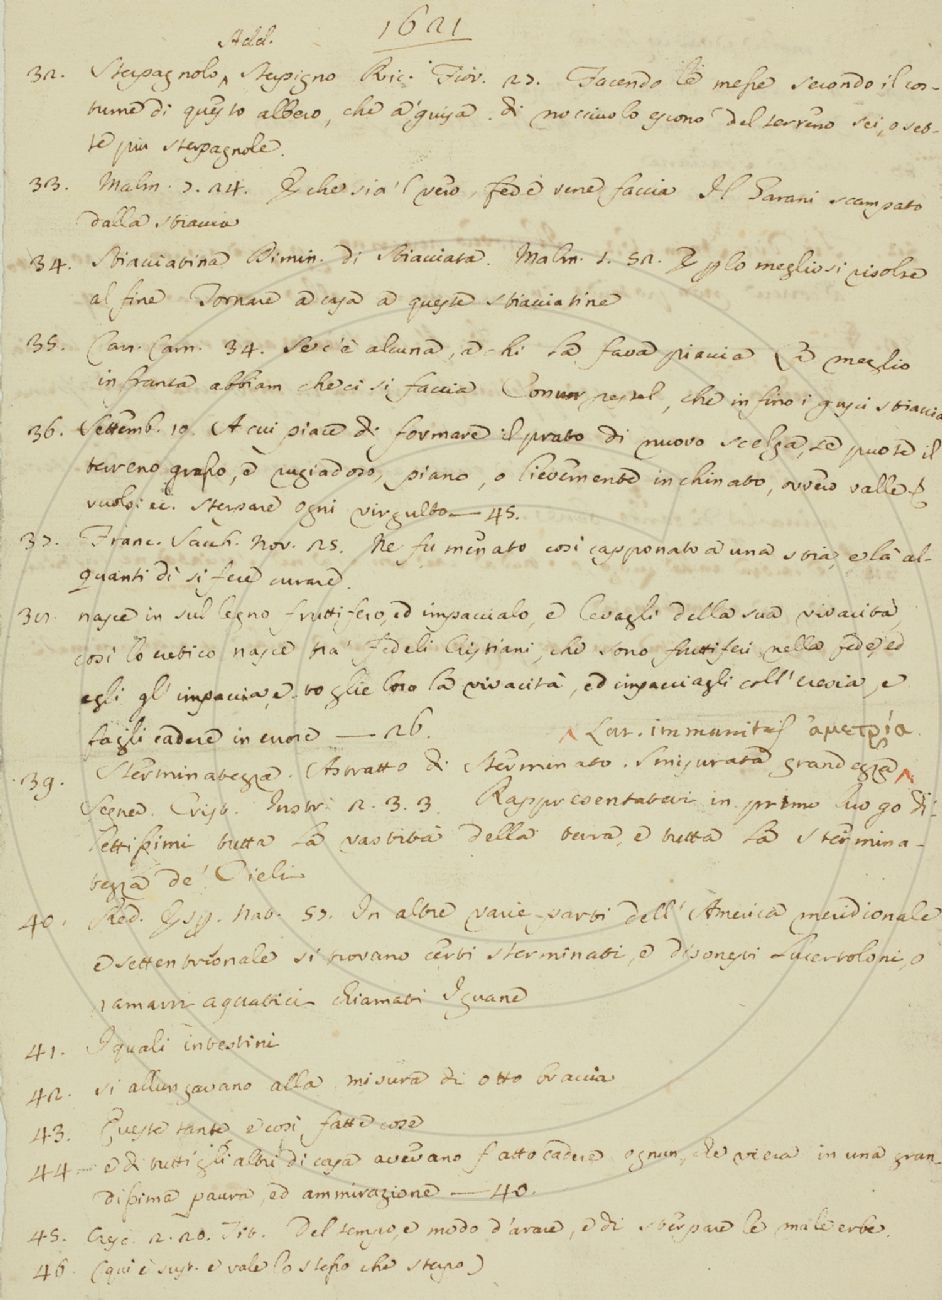 1621
Add.
32. Sterpagnolo, ^ Sterpigno Ric. Fior. 27. Facendo le messe secondo il cos-
tume di questo albero, che a guisa di nocciuolo escono del terreno sei, o set-
te piu sterpagnole.
33. Malm. 7. 24. E che sia 'l vero, fede vene faccia Il Garani scampato
dalla stiaccia
34. Stiacciatina Dimin. di Stiacciata. Malm. 1. 52. E p lo meglio si risolve
al fine Tornare a casa a queste stiacciatine
35. Can. Carn. 34. Se c'è alcuna, a chi la fava piaccia La meglio
infranta abbiam che ci si faccia Con un pestel, che infino i gusci stiaccia
36. Settemb. 10. A cui piace di formare il prato di nuovo scelga, se puote il
terreno grasso, e rugiadoso, piano, o lievemente inchinato, ovvero valle E
vuolsi ec. sterpare ogni virgulto — 45.
37. Franc. Sacch. Nov. 25. Ne fu menato così capponato a una stia, e là al-
quanti dì si fece curare.
38. nasce in sul legno fruttifero, ed impaccialo, e levagli della sua vivacità,
così lo eretico nasce tra' Fedeli Cristiani, che sono fruttiferi nella fede, ed
egli gl' impaccia, e toglie loro la vivacità, ed impacciagli coll' eresia, e
fagli cadere in errore — 26.
^ Lat. immanitas ἀμετρία.
39. Sterminatezza. Astratto di Sterminato. Smisurata grandezza ^
Segner. Crist. Instr. 2. 3. 3. Rappresentatevi in primo luogo di-
lettissimi tutta la vastità della terra, e tutta la stermina-
tezza de' Cieli
40. Red. Esp. Nat. 57. In altre varie parti dell' America meridionale
e settentrionale si trovano certi sterminati, e disonesti Lucertoloni, o
ramarri aquatici chiamati Iguane
41. I quali intestini
42. si allungavano alla misura di otto braccia
43. Queste tante e così fatte cose
44 — e di tutti gli altri di casa avevano fatto cadere ognun, che v'era in una gran-
dissima paura, ed ammirazione — 40.
45. Cresc. 2. 20. Tit. Del tempo, e modo d'arare, e di sterpare le male erbe.
46. (qui è sust. e vale lo stesso che sterpo)